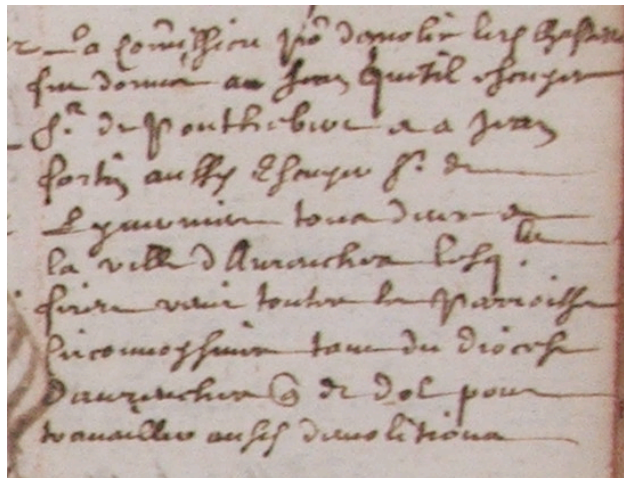 La com̃ission po^r demolir lesd
fut donnée a Jean Guitil escuyer
S.^r de Ponthebert et a Jean
fortin aussy Escuyer S.^r de
tous deux de
la ville dAvranches lesq^ls
firent venir toutes les Parroisses
circonvoisines tant du diocese
davranches q̃ de dol pour
travailler ausd demolitions